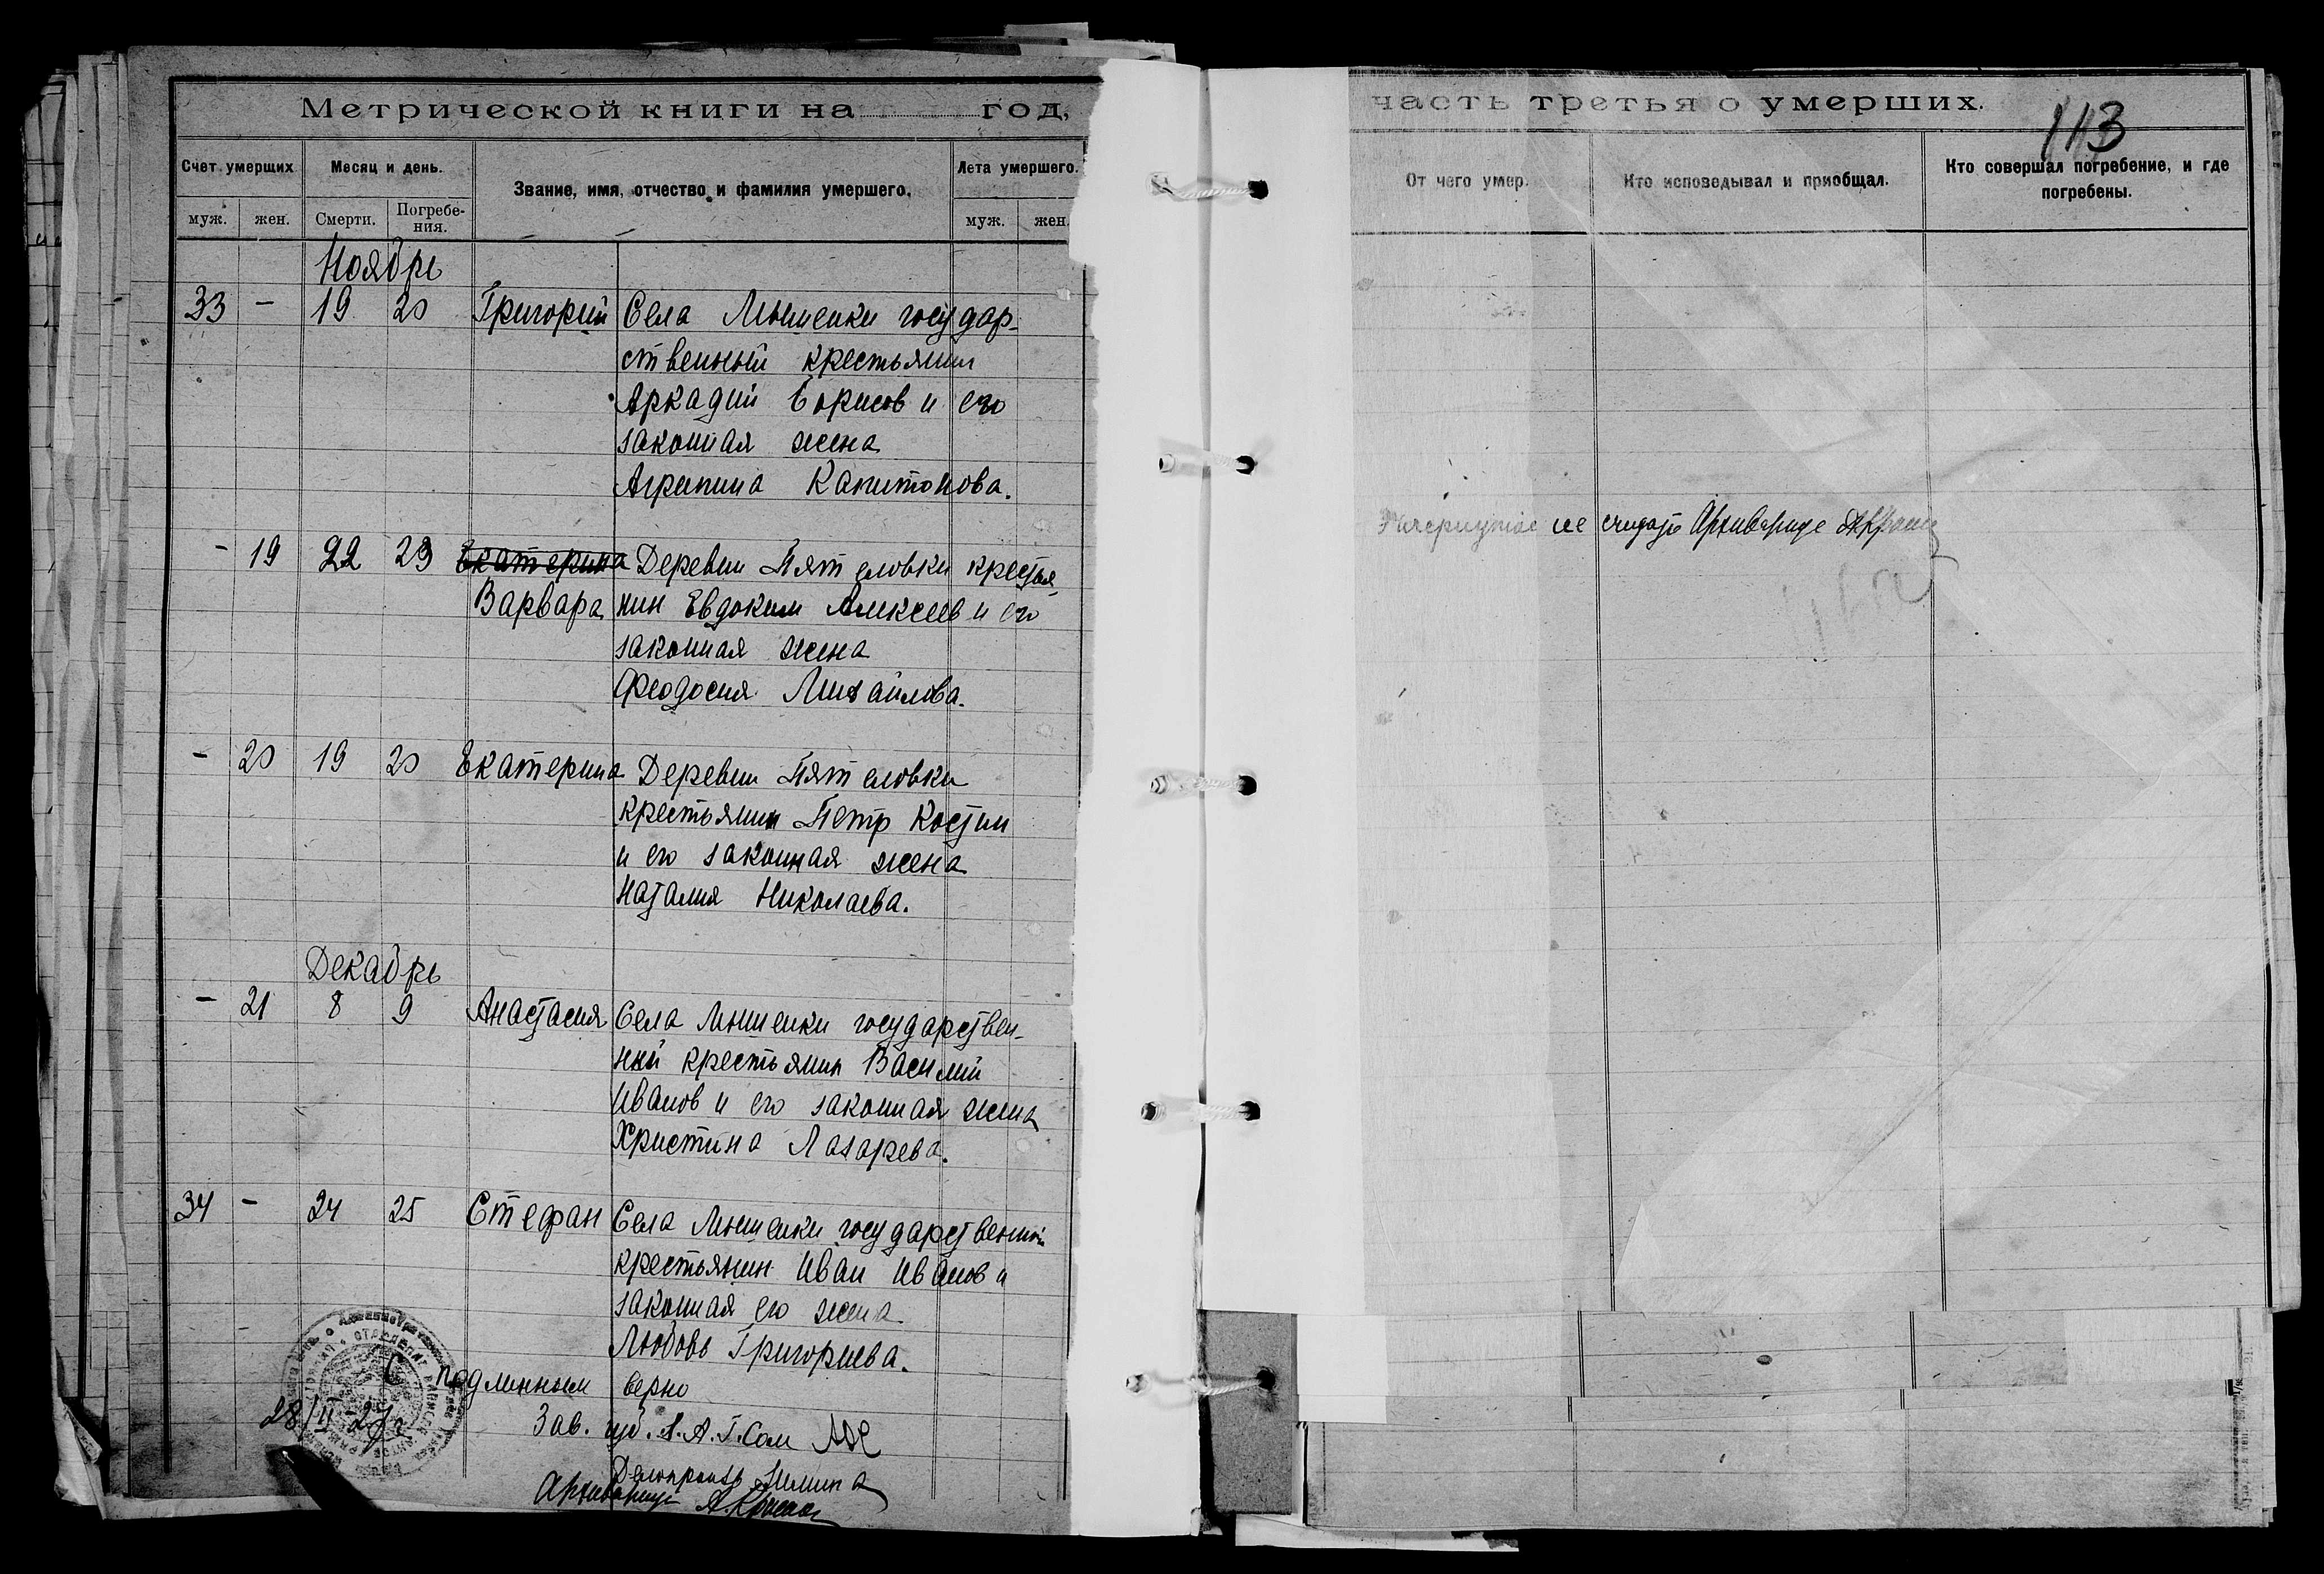 Метрической книги на год,
Счет умерших
Месяц и день.
Звание, имя, отчество и фамилия умершего.
Лета умершего.
муж. жен. Смерти. Погребе-
ния.
муж. жен.
Ноябрь
33 - 19 20 Григорий Села Мышенки государ-
ственный крестьянин
Аркадий Борисов и его
законная жена
Агрипина Капитонова.
- 19 22 23 Екатерина Деревни Пятеловки крестья
Варвара нин Евдоким Алексеев и его
законная жена
Феодосия Михайлова.
- 20 19 20 Екатерина Деревни Пятеловки
крестьянин Петр Костин
и его законная жена
Наталия Николаева.
Декабрь
- 21 8 9 Анастасия Села Мышенки государствен-
ный крестьянин Василий
Иванов и его законная жена
Христина Лазарева.
34 - 24 25 Стефан Села Мышенки государственный
крестьянин Иван Иванов и
законная его жена
Любовь Григориева.
С подлинным верно
28/II
Зав. губ.
Делопроизв
Архивариус
часть третья о умерших.
113
От чего умер.
Кто исповедывал и приобщал.
Кто совершал погребение, и где
погребены.
не считать Архивариус